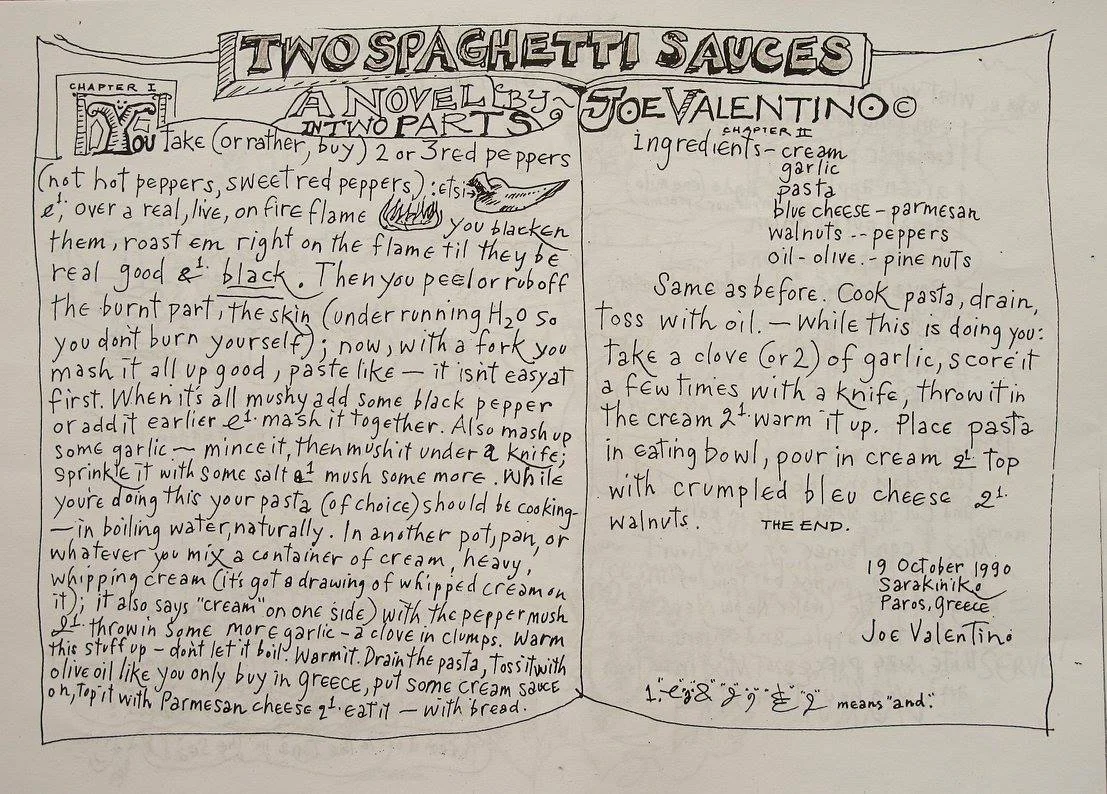 TWO SPAGHETTI SAUCES
A NOVEL BY JOE VALENTINO ©
IN TWO PARTS
CHAPTER I
You take (or rather, buy) 2 or 3 red peppers
(not hot peppers, sweet red peppers) : etsi→
e¹; over a real, live, on fire flame you blacken
them, roast em right on the flame til they be
real good &¹· black. Then you peel or rub off
the burnt part, the skin (under running H₂O so
you dont burn yourself); now, with a fork you
mash it all up good, paste like — it isnt easy at
first. When it's all mushy add some black pepper
or add it earlier e¹· mash it together. Also mash up
some garlic — mince it, then mush it under a knife;
sprinkle it with some salt &¹ mush some more. While
you're doing this your pasta (of choice) should be cooking-
— in boiling water, naturally. In another pot, pan, or
whatever you mix a container of cream, heavy,
whipping cream (it's got a drawing of whipped cream on
it); it also says "cream" on one side) with the pepper mush
&¹· throw in some more garlic – a clove in clumps. Warm
this stuff up – dont let it boil. Warm it. Drain the pasta, toss it with
olive oil like you only buy in Greece, put some cream sauce
on, top it with Parmesan cheese &¹· eat it — with bread.
CHAPTER II
ingredients – cream
garlic
pasta
blue cheese – parmesan
walnuts -- peppers
oil - olive. - pine nuts
Same as before. Cook pasta, drain,
toss with oil. — While this is doing you:
take a clove (or 2) of garlic, score it
a few times with a knife, throw it in
the cream &¹· warm it up. Place pasta
in eating bowl, pour in cream &¹· top
with crumpled bleu cheese &¹·
walnuts. THE END.
19 October 1990
Sarakiniko
Paros, Greece
Joe Valentino
1. means "and".